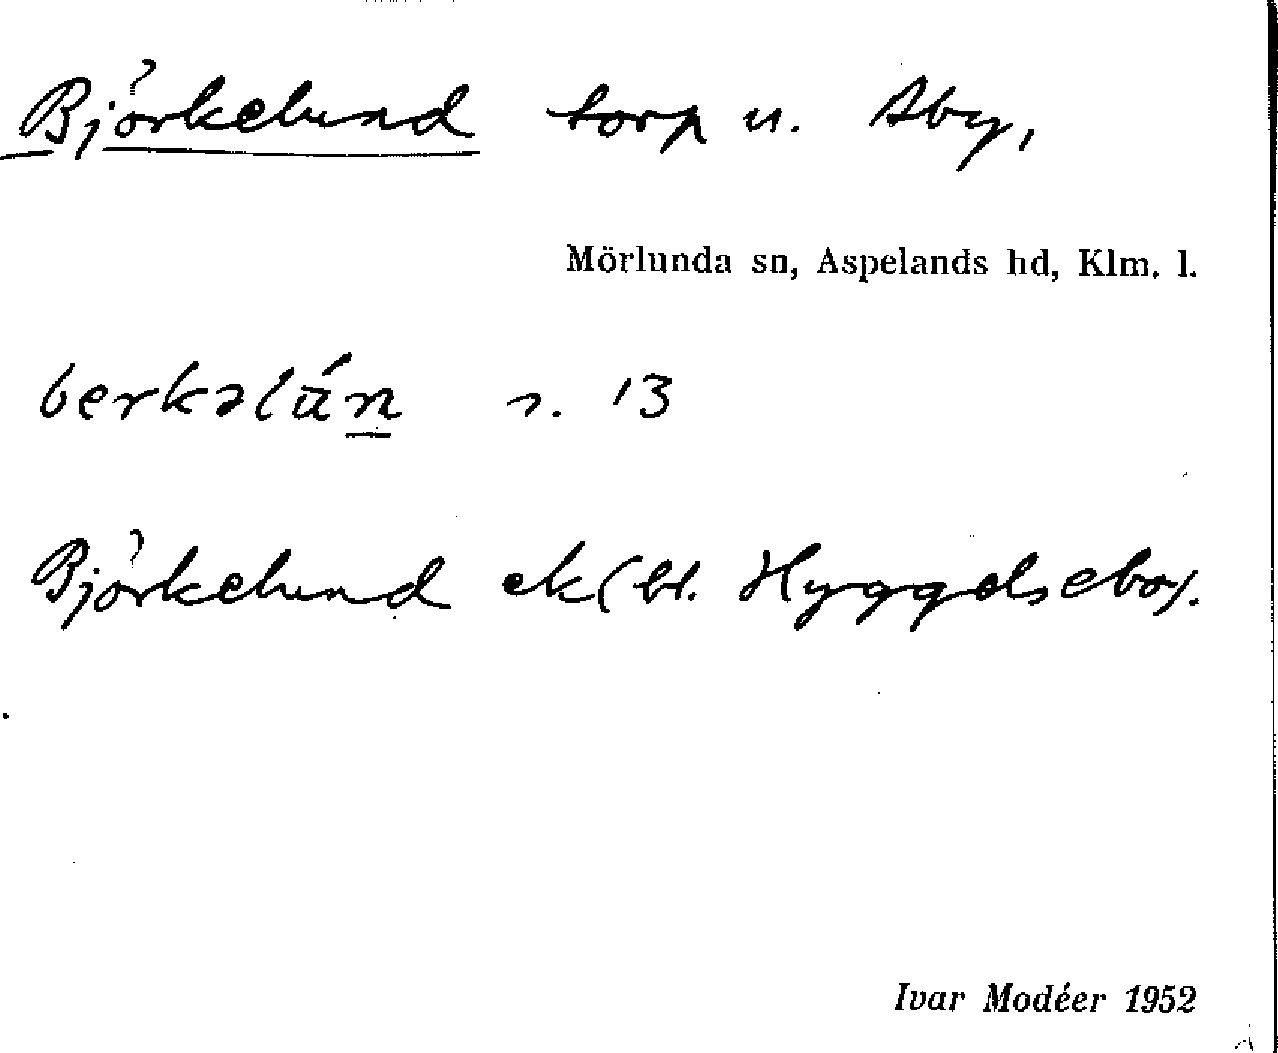 Björkelund torp u. Åby,
Mörlunda sn, Aspelands hd, Klm. l.
berkəlún s. 13
Björkelund ek (bl. Hyggelsebo).
Ivar Modéer 1952